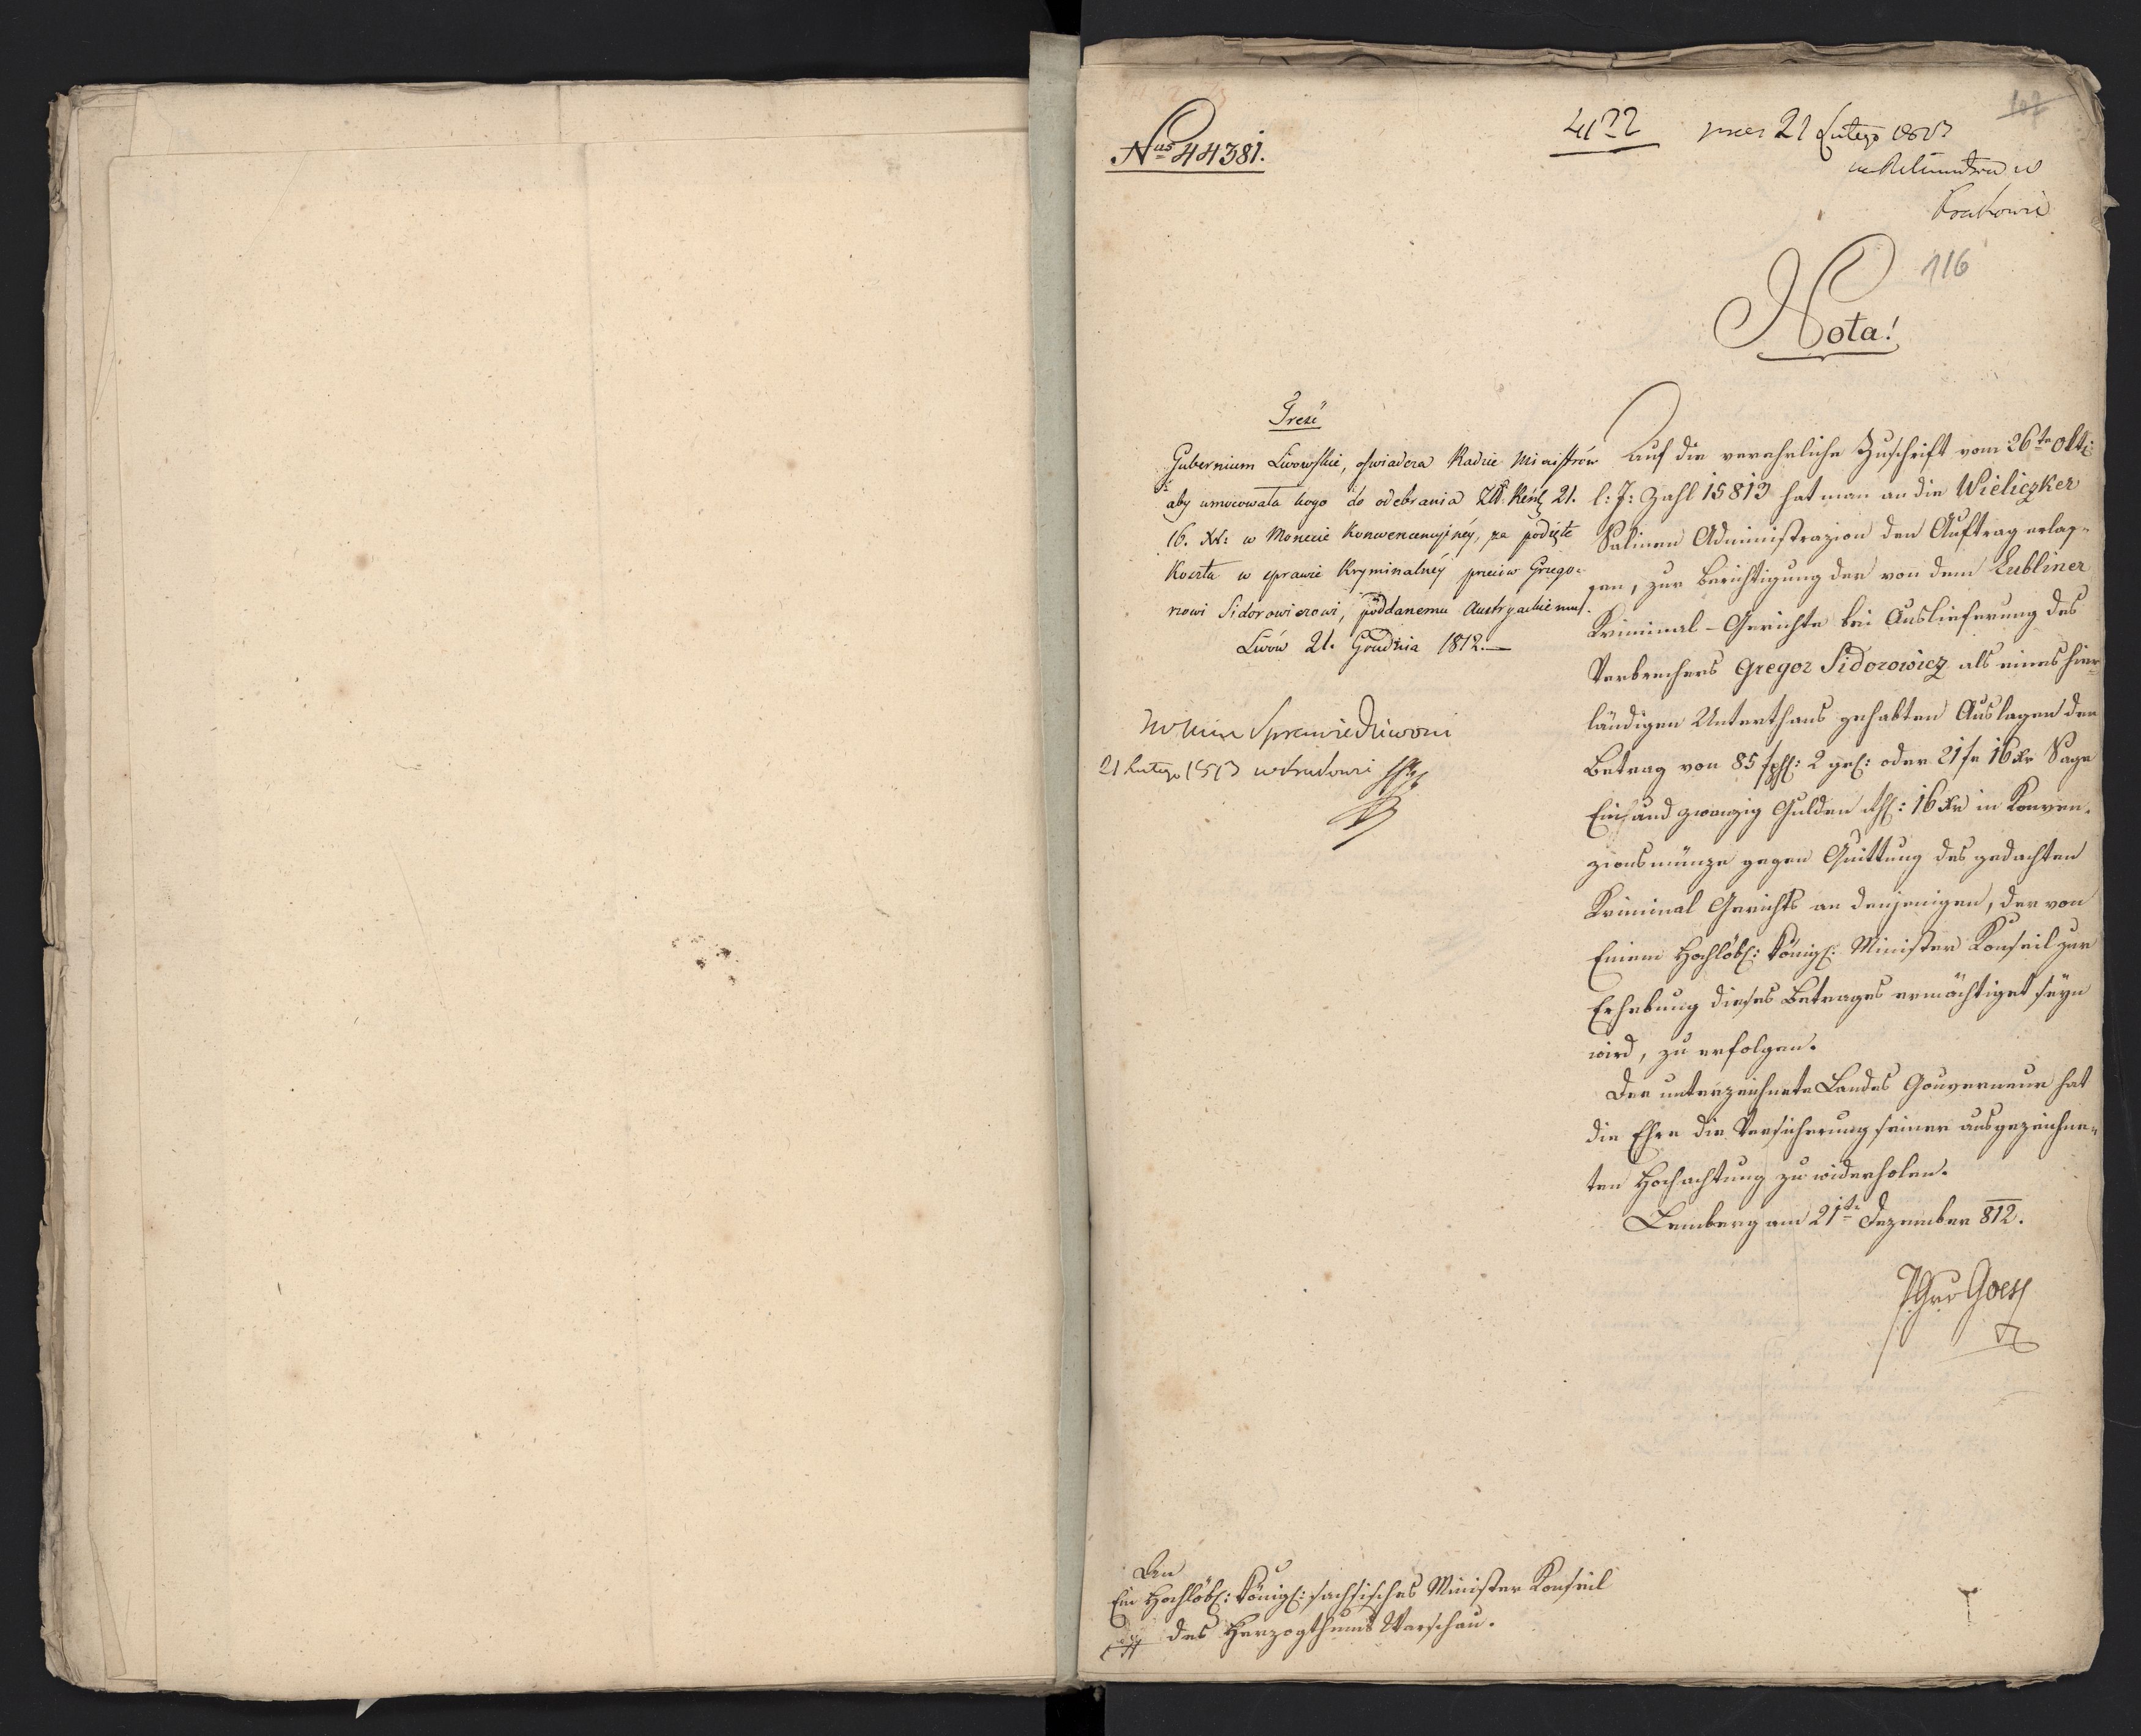 Nus 44381.
4122 21 Lutego
w
Krakowie
116
Nota!
Treść
Gubernium Lwowskie, oświadcza Radzie Ministrów
aby umocowała kogo do odebrania 21.
16. Xr: w Monecie Konwencencyiney, za podięte
Koszta w sprawie Kryminalney przeciw Grzego-
rzowi Sidorowiczowi, poddanemu Austryackiemu.
Lwów 21. Grudnia 1812.
Sprawiedliwości
21 Lutego 1813 w Krakowie
Auf die verehrliche Zuschrift vom 26te Okt:
l: J: Zahl 15813 hat man an die Wieliczker
Salinen Administrazion den Auftrag erlas-
sen, zur Berichtigung der von dem Lubliner
Kriminal-Gerichte bei Auslieferung des
Verbrechers Gregor Sidorowicz als eines hier-
ländigen Unterthans gehabten Auslagen den
Betrag von 85 2 gr: oder 21 fr 16 Xr Sage
Einund zwanzig Gulden 16 Xr in Konven-
zionsmünze gegen Quittung des gedachten
Kriminal Gerichts an denjenigen, der von
Einem Hochlöbl: königl: Minister Konseil zur
Erhebung dieses Betrages ermächtiget seyn
wird, zu erfolgen.
Der unterzeichnete Landes Gouverneur hat
die Ehre die Versicherung seiner ausgezeichne-
ten Hochachtung zu widerholen.
Lemberg am 21te Dezember 812.
Goess
An
Ein Hochlöbl: königl: sachsisches Minister Konseil
des Herzogthums Warschau.